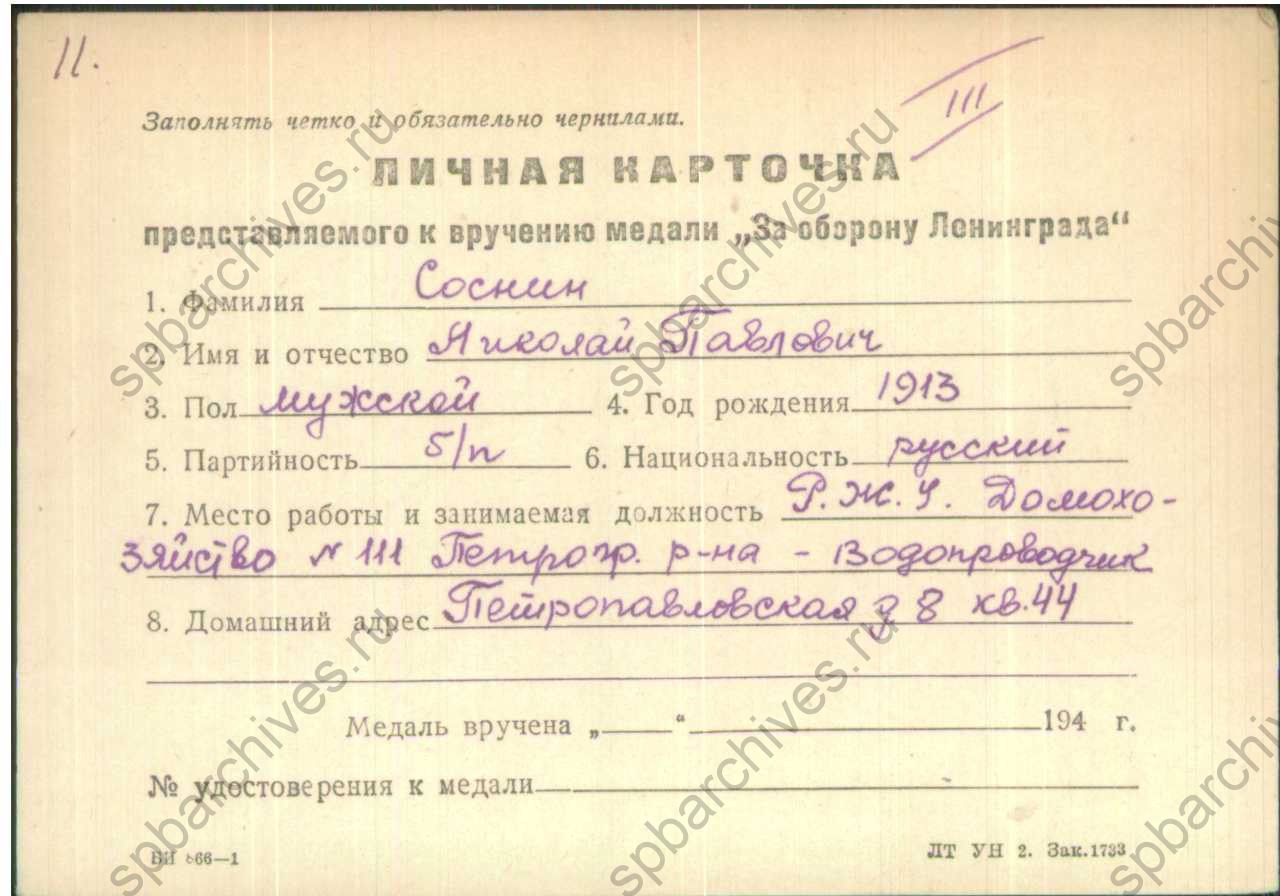 11.
III
Заполнять четко и обязательно чернилами.
ЛИЧНАЯ КАРТОЧКА
представляемого к вручению медали „За оборону Ленинграда“
1. Фамилия Соснин
2. Имя и отчество Николай Павлович
3. Пол мужской 4. Год рождения 1913
5. Партийность б/п 6. Национальность русский
7. Место работы и занимаемая должность Р.Ж.У. Домохо-
зяйство N 111 Петрогр. р-на - Водопроводчик
8. Домашний адрес Петропавловская д 8 кв.44
Медаль вручена „ “ 194 г.
№ удостоверения к медали
ЛТ УН 2. Зак.1733
spbarchives.ru